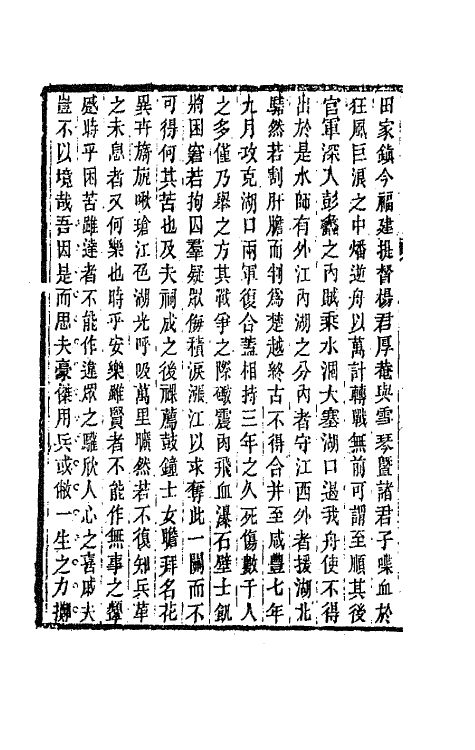 田家鎮今福建提督楊君厚菴與雪琴暨諸君子喋血於
狂風巨浪之中燔逆舟以萬計轉戰無前可謂至順其後
官軍深入彭蠡之內賊乘水涸大塞湖口遏我舟使不得
出於是水師有外江內湖之分內者守江西外者援湖北
騞然若割肝膽而判爲楚越終古不得合并至咸豐七年
九月攻克湖口兩軍復合蓋相持三年之久死傷數千人
之多僅乃舉之方其戰爭之際礮震肉飛血瀑石壁士飢
將困窘若拘囚羣疑眾侮積淚漲江以求奪此一關而不
可得何其苦也及夫祠成之後祼薦鼓鐘士女瞻拜名花
異卉旖旎啾瑲江色湖光呼吸萬里曠然若不復知兵革
之未息者又何樂也時乎安樂雖賢者不能作無事之顰
慼時乎困苦雖達者不能作違眾之驩欣人心之喜戚夫
豈不以境哉吾因是而思夫豪傑用兵或敝一生之力擲